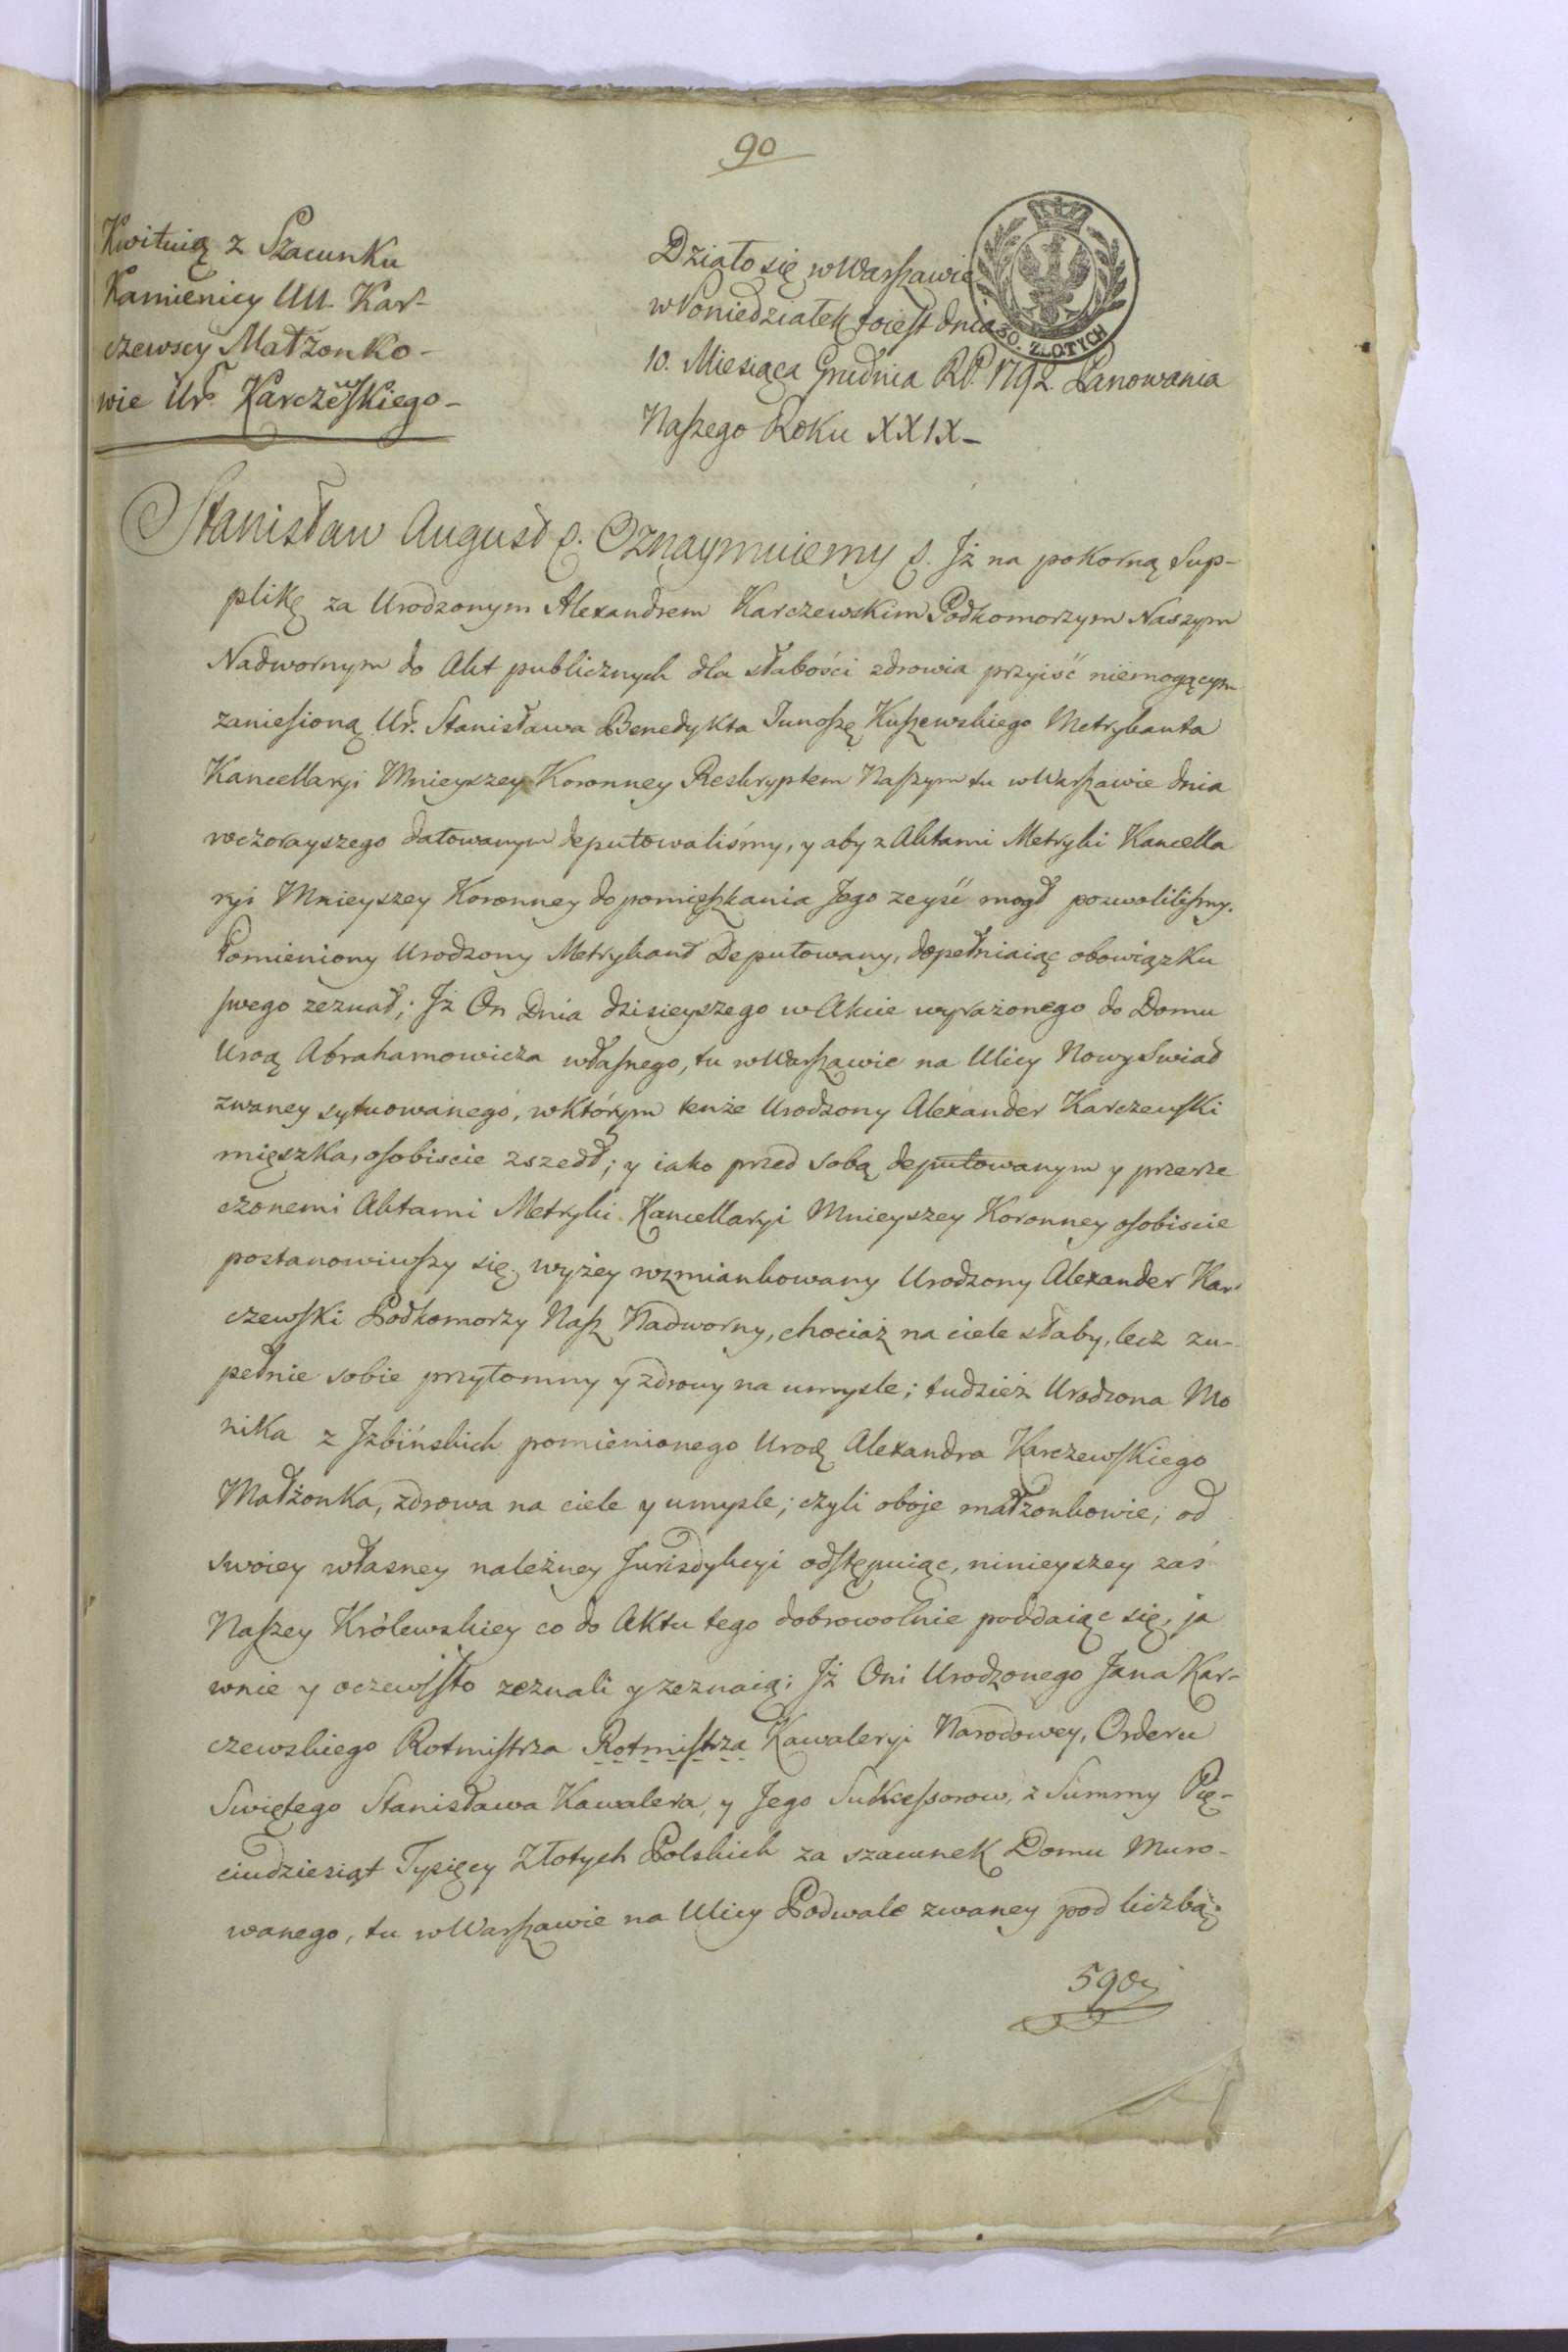 90
Kwituią z Szacunku
Kamienicy UU. Kar-
czewscy Małżonko-
wie Ur. Karczewskiego-
Działo się w Warszawie
w Poniedziałek to iest dnia
10. Miesiąca Grudnia R.P. 1792 Panowania
Naszego Roku XXIX-
30. ZŁOTYCH
Stanisław August &. Oznaymuiemy &. Jż na pokorną Sup-
plikę za Urodzonym Alexandrem Karczewskim Podkomorzym Naszym
Nadwornym do Akt publicznych dla słabości zdrowia przyiść niemogącym
zaniesioną Ur. Stanisława Benedykta Junoszę Kuszewskiego Metrykanta
Kancellaryi Mnieyszey Koronney Reskryptem Naszym tu w Warszawie dnia
wczorayszego datowanym deputowaliśmy, y aby z Aktami Metryki Kancella
ryi Mnieyszey Koronney do pomięszkania Jego zeyść mogł pozwolilismy.
Pomieniony Urodzony Metrykant Deputowany, dopełniaiąc obowiązku
swego zeznał; Jż On Dnia dzisieyszego w Akcie wyrażonego do Domu
Urod Abrahamowicza własnego, tu w Warszawie na Ulicy Nowy Swiat
zwaney sytuowanego, w którym tenże Urodzony Alexander Karczewski
mięszka, osobiscie zszedł; y iako przed sobą deputowanym y przerze
czonemi Aktami Metryki Kancellaryi Mnieyszey Koronney osobiscie
postanowiwszy się, wyżey wzmiankowany Urodzony Alexander Kar
czewski Podkomorzy Nasz Nadworny, chociaż na ciele słaby, lecz zu-
pełnie sobie przytomny y zdrowy na umysle; tudzież Urodzona Mo
nika z Jzbińskich pomienionego Urod Alexandra Karczewskiego
Małżonka, zdrowa na ciele y umysle; czyli oboje małżonkowie; od
swoiey własney należney Jurisdykcyi odstępuiąc, ninieyszey zaś
Naszey Królewskiey co do Aktu tego dobrowolnie poddaiąc się, ja
wnie y oczewisto zeznali y zeznaią; Jż Oni Urodzonego Jana Kar-
czewskiego Rotmistrza Rotmistrza Kawaleryi Narodowey, Orderu
Swiętego Stanisława Kawalera, y Jego Sukcessorow, z Summy Pię-
ciudziesiąt Tysięcy Złotych Polskich za szacunek Domu Muro-
wanego, tu w Warszawie na Ulicy Podwale zwaney pod liczbą
590